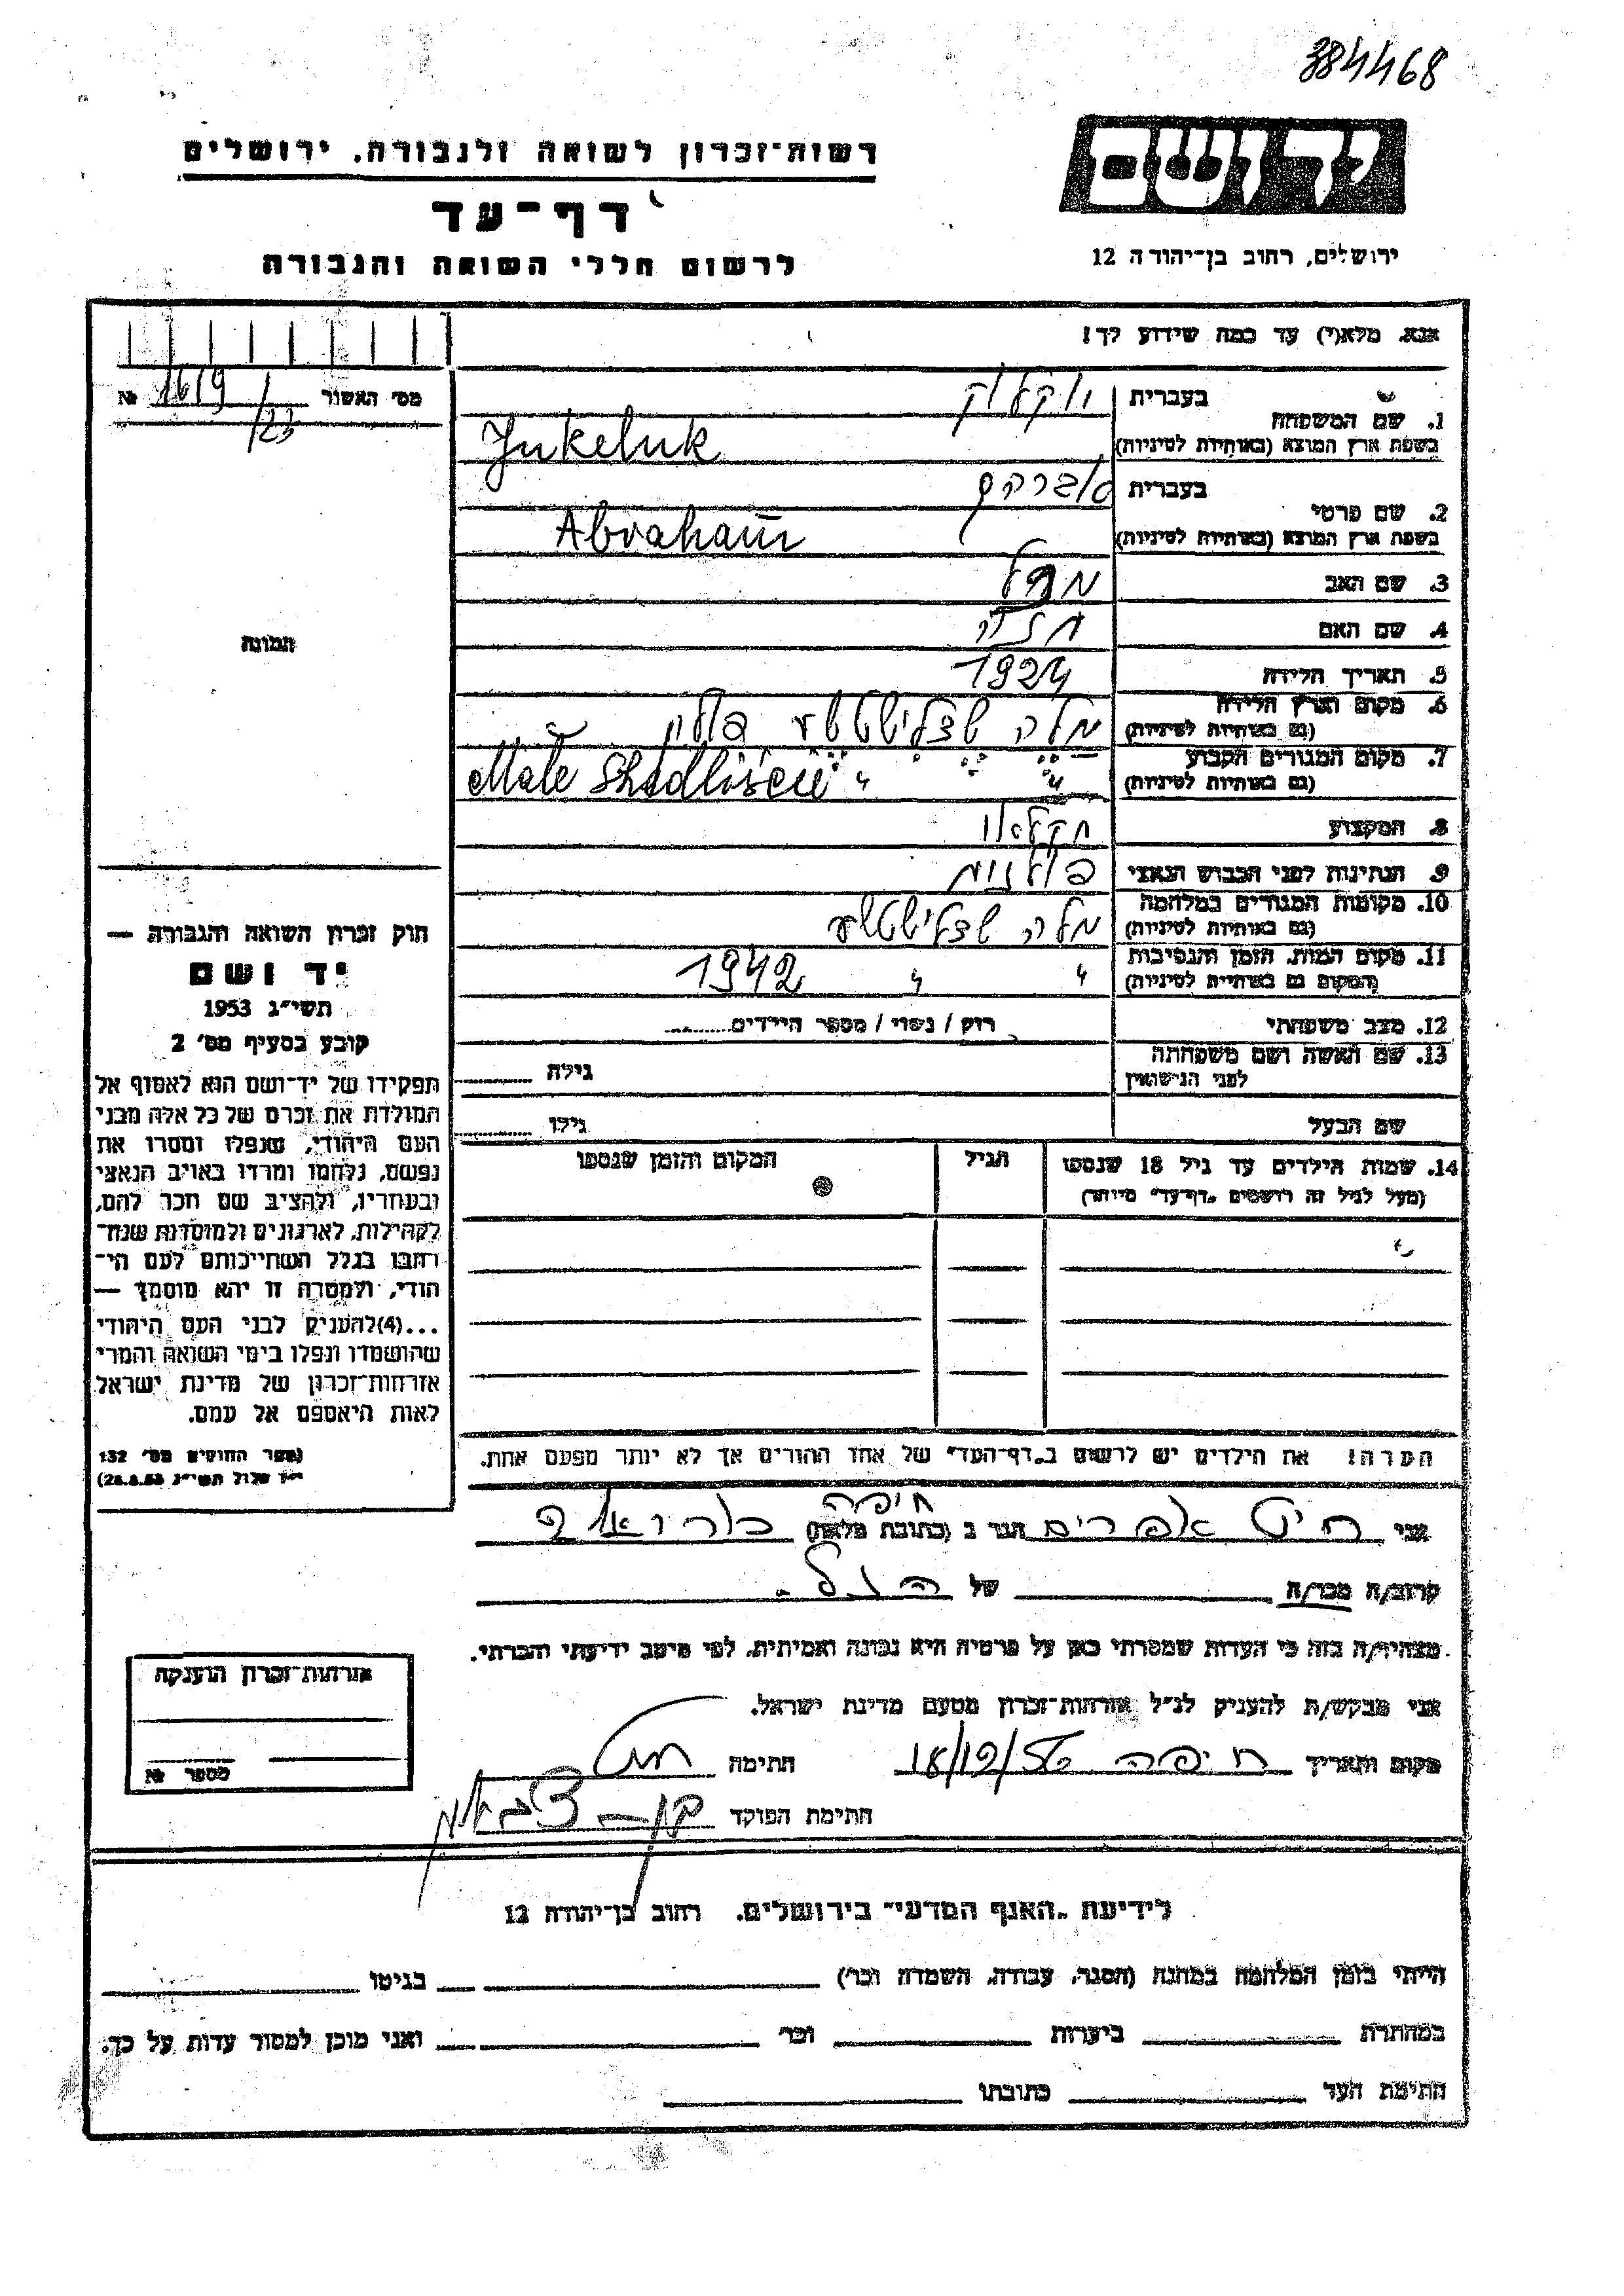 384468
יד ושם
רשות־זכרון לשואה ולגבורה, ירושלים
דף־עד
לרשום חללי השואה והגבורה
ירושלים, רחוב בן־יהודה 12
אנא, מלא(י) עד כמה שידוע לך!
מס׳ האשור 1619/123 №
1. שם המשפחה
בעברית יוקלוק
בשפת ארץ המוצא (באותיות לטיניות) Jukeluk
2. שם פרטי
בעברית אברהם
בשפת ארץ המוצא (באותיות לטיניות) Abraham
3. שם האב
4. שם האם חנה
5. תאריך הלידה 1924
6. מקום וארץ הלידה
(גם באותיות לטיניות) מלה פולין
7. מקום המגורים הקבוע
(גם באותיות לטיניות) Małe " "
8. המקצוע חקלאי
9. הנתינות לפני הכבוש הנאצי פולנית
10. מקומות המגורים במלחמה
(גם באותיות לטיניות) מלה
11. מקום המות, הזמן והנסיבות
(המקום גם באותיות לטיניות) " " 1942
12. מצב משפחתי רוק / נשוי / מספר הילדים
13. שם האשה ושם משפחתה
לפני הנישואין גילה
שם הבעל גילו
14. שמות הילדים עד גיל 18 שנספו
(מעל לגיל זה רושמים „דף־עד״ מיוחד)
הגיל
המקום והזמן שנספו
הערה! את הילדים יש לרשום ב„דף־העד״ של אחד ההורים אך לא יותר מפעם אחת.
תמונה
חוק זכרון השואה והגבורה —
יד ושם
תשי״ג 1953
קובע בסעיף מס׳ 2
תפקידו של יד־ושם הוא לאסוף אל
המולדת את זכרם של כל אלה מבני
העם היהודי, שנפלו ומסרו את
נפשם, נלחמו ומרדו באויב הנאצי
ובעוזריו, ולהציב שם וזכר להם,
לקהילות, לארגונים ולמוסדות שנח־
רבו בגלל השתייכותם לעם הי־
הודי, ולמטרה זו יהא מוסמך —
...(4) להעניק לבני העם היהודי
שהושמדו ונפלו בימי השואה והמרי
אזרחות־זכרון של מדינת ישראל
לאות היאספם אל עמם.
(ספר החוקים מס׳ 132
י״ז אלול תשי״ג 28.8.53)
אני אפרים הגר ב (כתובת מלאה) חיפה
קרוב/ה מכר/ה של הנ״ל.
מצהיר/ה בזה כי העדות שמסרתי כאן על פרטיה היא נכונה ואמיתית, לפי מיטב ידיעתי והכרתי.
אני מבקש/ת להעניק לנ״ל אזרחות־זכרון מטעם מדינת ישראל.
מקום ותאריך חיפה 18/12/56 חתימה
חתימת הפוקד
אזרחות־זכרון הוענקה
מספר №
לידיעת „האגף המדעי״ בירושלים, רחוב בן־יהודה 12
הייתי בזמן המלחמה במחנה (הסגר, עבודה, השמדה וכו׳) בגיטו
במחתרת ביערות וכו׳ ואני מוכן למסור עדות על כך.
חתימת העד כתובתו